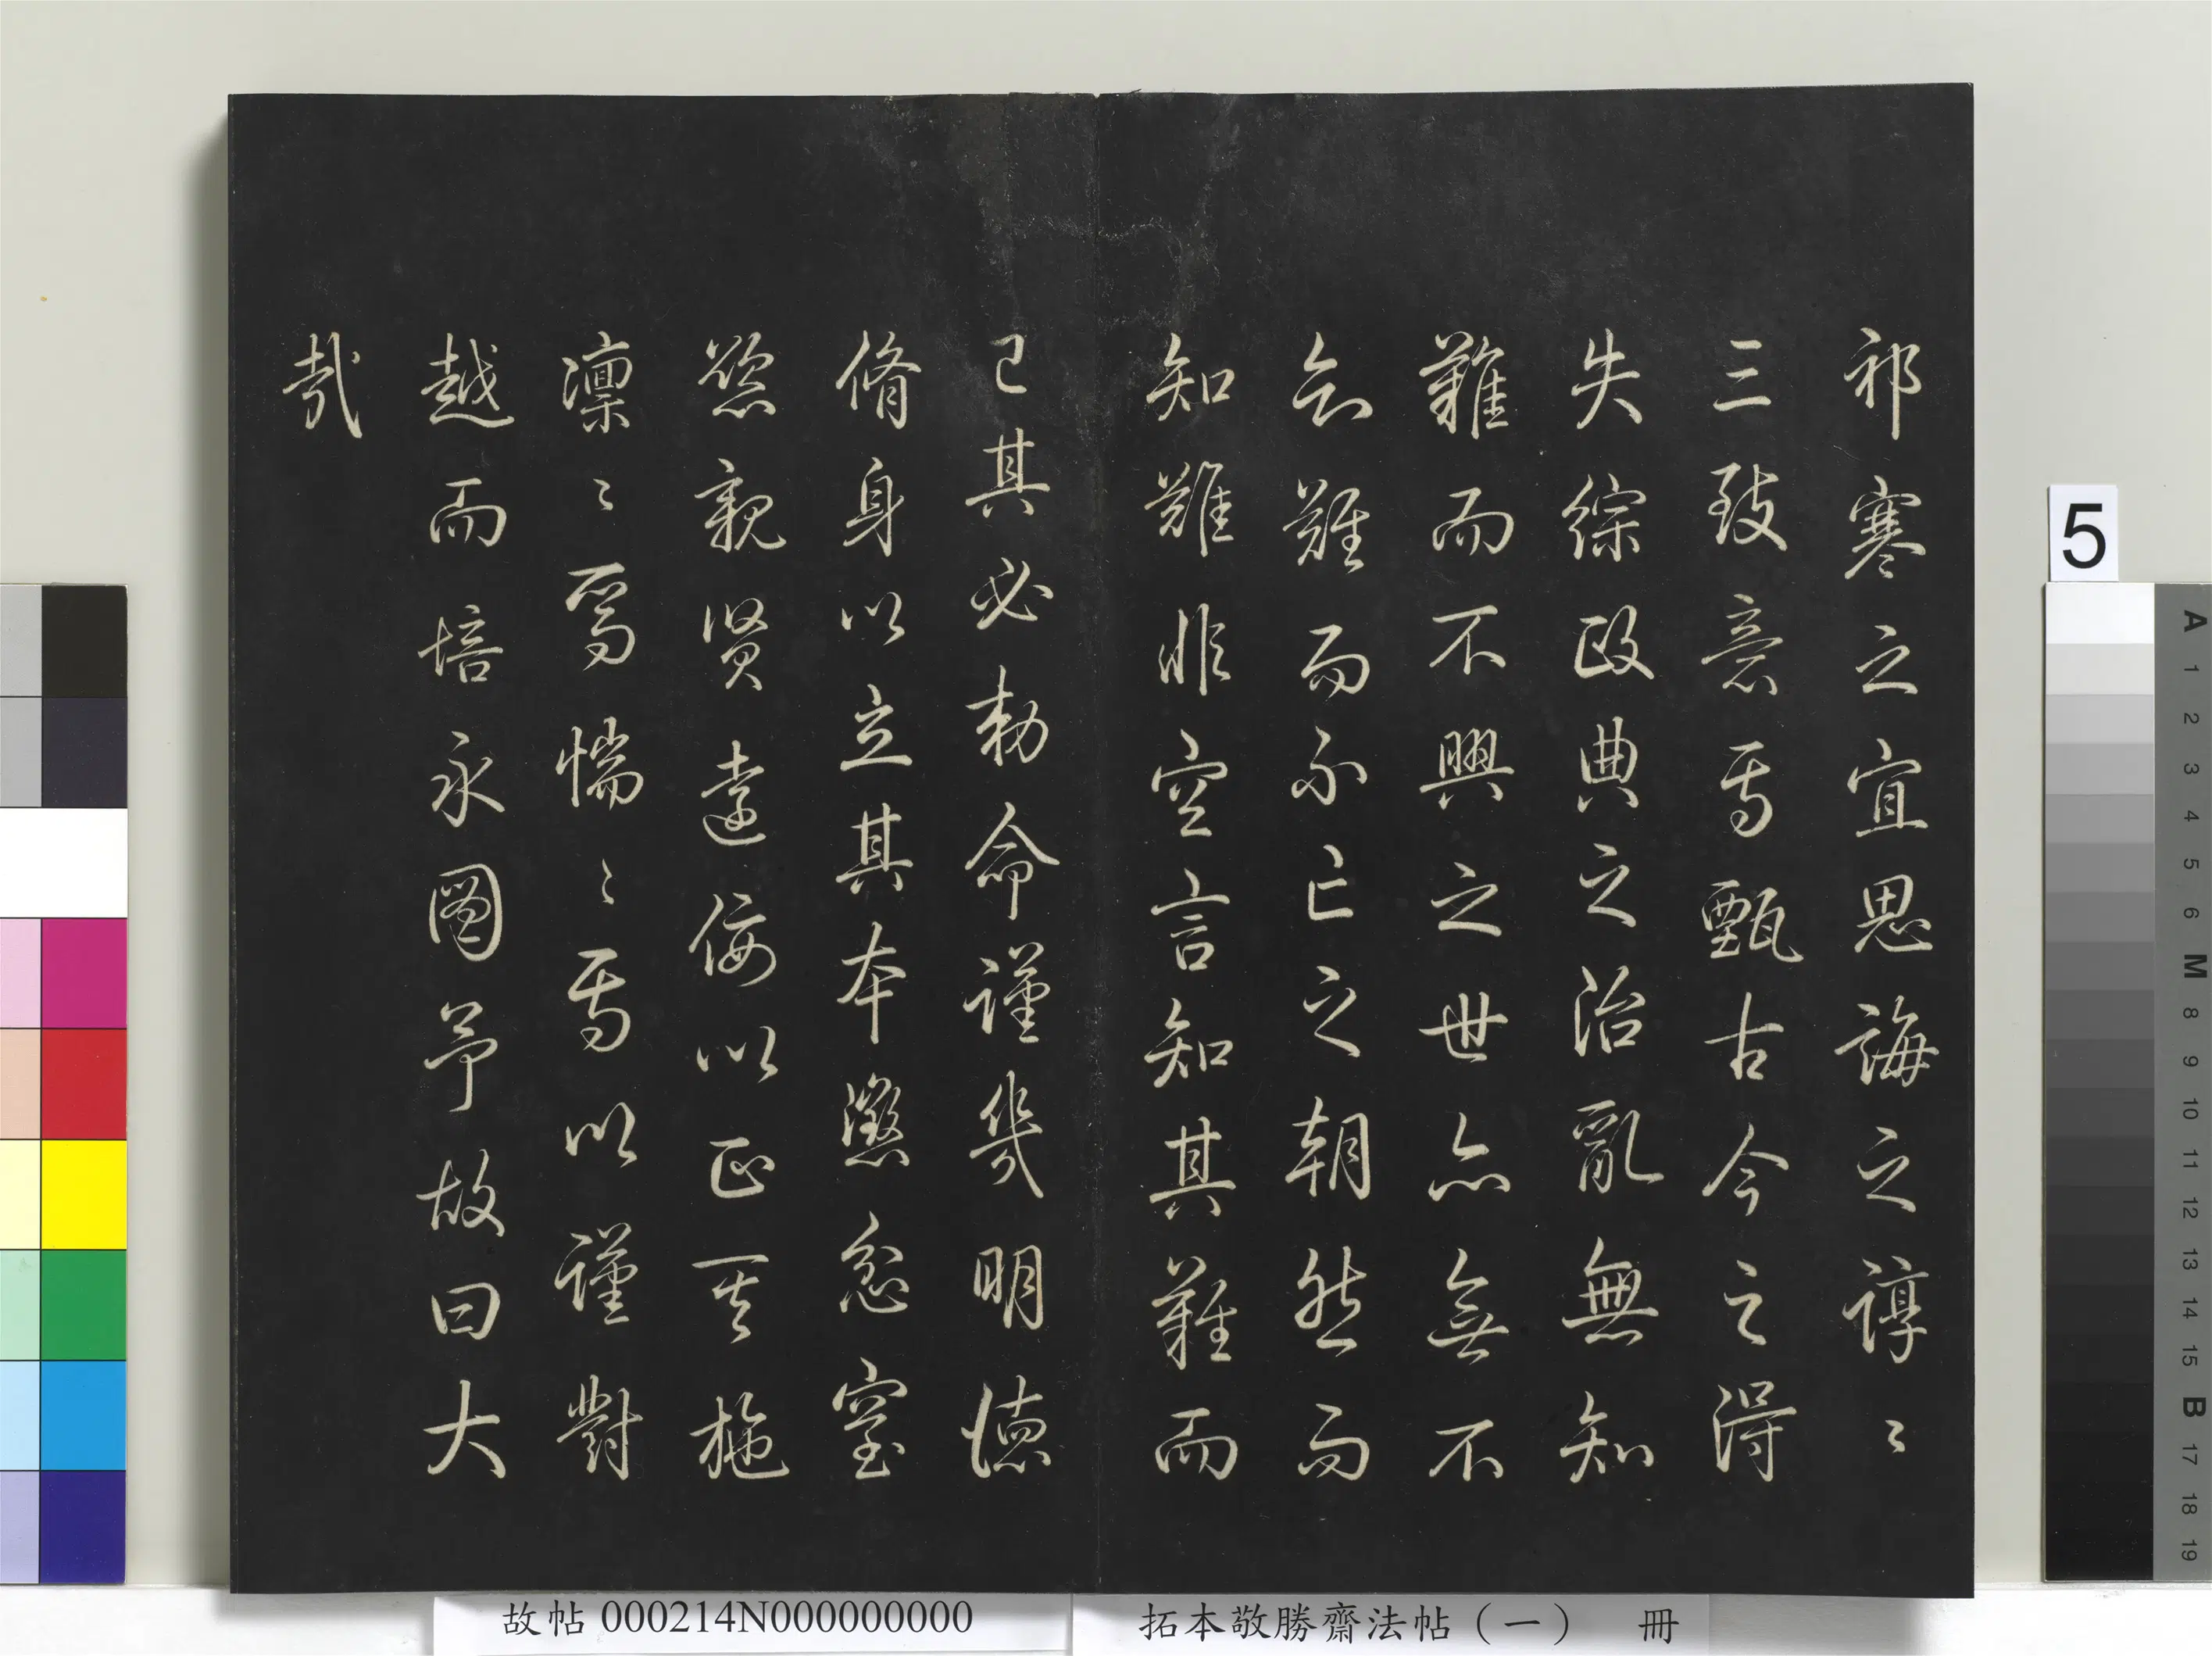 祁寒之宜思誨之諄〻
三致意焉甄古今之得
失綜政典之治亂無知
難而不興之世亦無不
知難而不亡之朝然而
知難非空言知其難而
已其必勅命謹幾明德
脩身以立其本懲忿窒
慾親賢遠佞以正其施
凜〻焉惴〻焉以謹對
越而培永圖予故曰大
哉
故帖 000214N000000000
拓本敬勝齋法帖(一) 冊
5
A
1
2
3
4
5
6
M
8
9
10
11
12
13
14
15
B
17
18
19